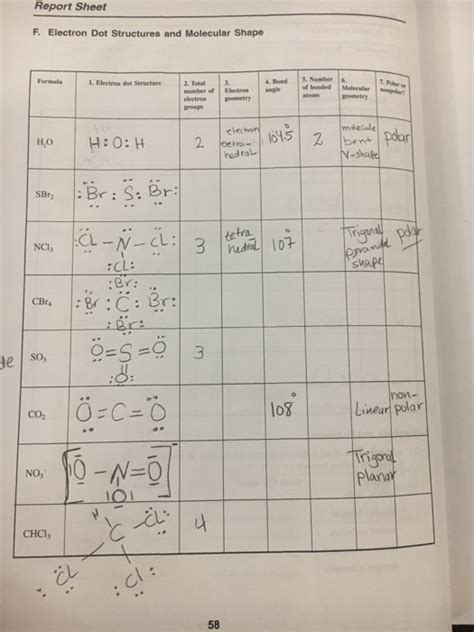 Report Sheet
F. Electron Dot Structures and Molecular Shape
Formula 1. Electron dot Structure 2. Total number of electron groups 3. Electron geometry 4. Bond angle 5. Number of bonded atoms 6. Molecular geometry 7. Polar or nonpolar?
H₂O H:O:H 2 electron tetra-hedral 104.5° 2 molecule bent V-shape polar
SBr₂ :Br:S:Br:
NCl₃ :CL-N-CL: :CL: 3 tetra hedral 107° Trigonal pyramidal shape polar
CBr₄ :Br: :Br:C:Br: :Br:
SO₃ O=S=O :O: 3
CO₂ O=C=O 108° Linear non-polar
NO₃⁻ [|O-N=O |O|] Trigonal planar
CHCl₃ H C :CL: :CL :Cl: 4
58